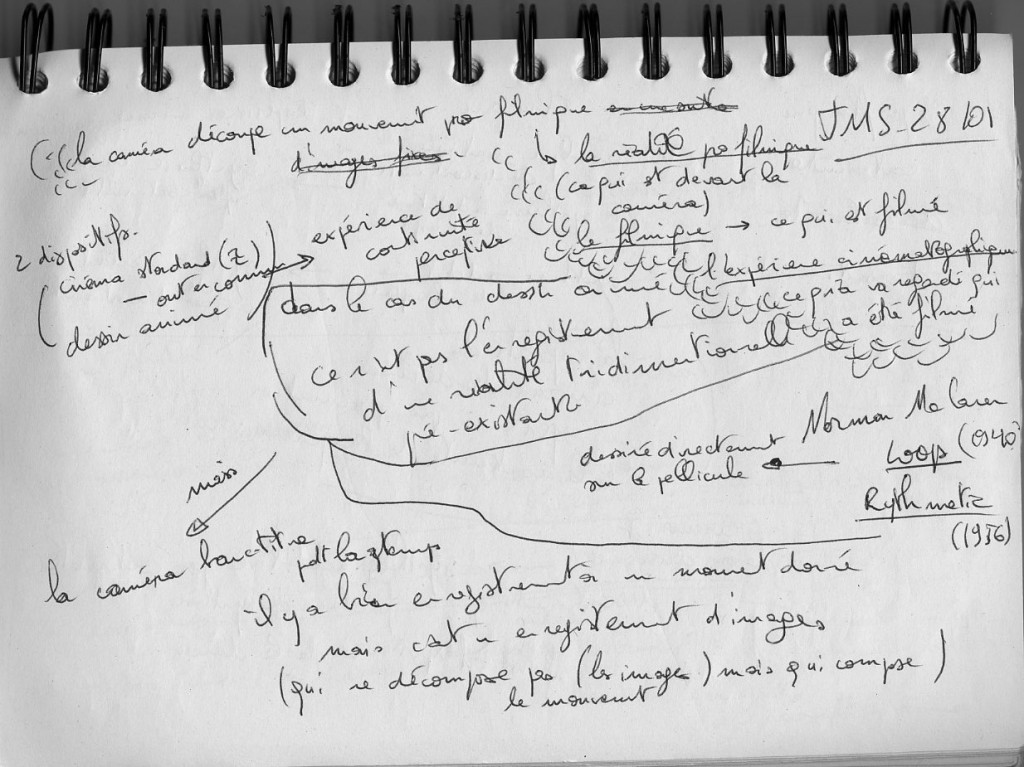 la caméra découpe un mouvement pro filmique en une suite
d'images fixes.
JMS_28/01
↳ la réalité pro filmique
(ce qui est devant la
caméra)
le filmique → ce qui est filmé
l'expérience cinématographique
ce qu'on va regarder qui
a été filmé
2 dispositifs.
cinéma standard (Z)
— ont en commun
dessin animé
→ expérience de
continuité
perceptive
dans le cas du dessin animé
ce n'est pas l'enregistrement
d'une réalité tridimentionnelle
pré-existante
Norman McLaren
Loop (1940)
Rythmetic
(1956)
dessiné directement
sur la pellicule
mais
la caméra banctitre
pdt las temps
il y a bien enregistrement à un moment donné
mais c'est un enregistrement d'images
(qui ne décompose pas (les images) mais qui compose)
le mouvement